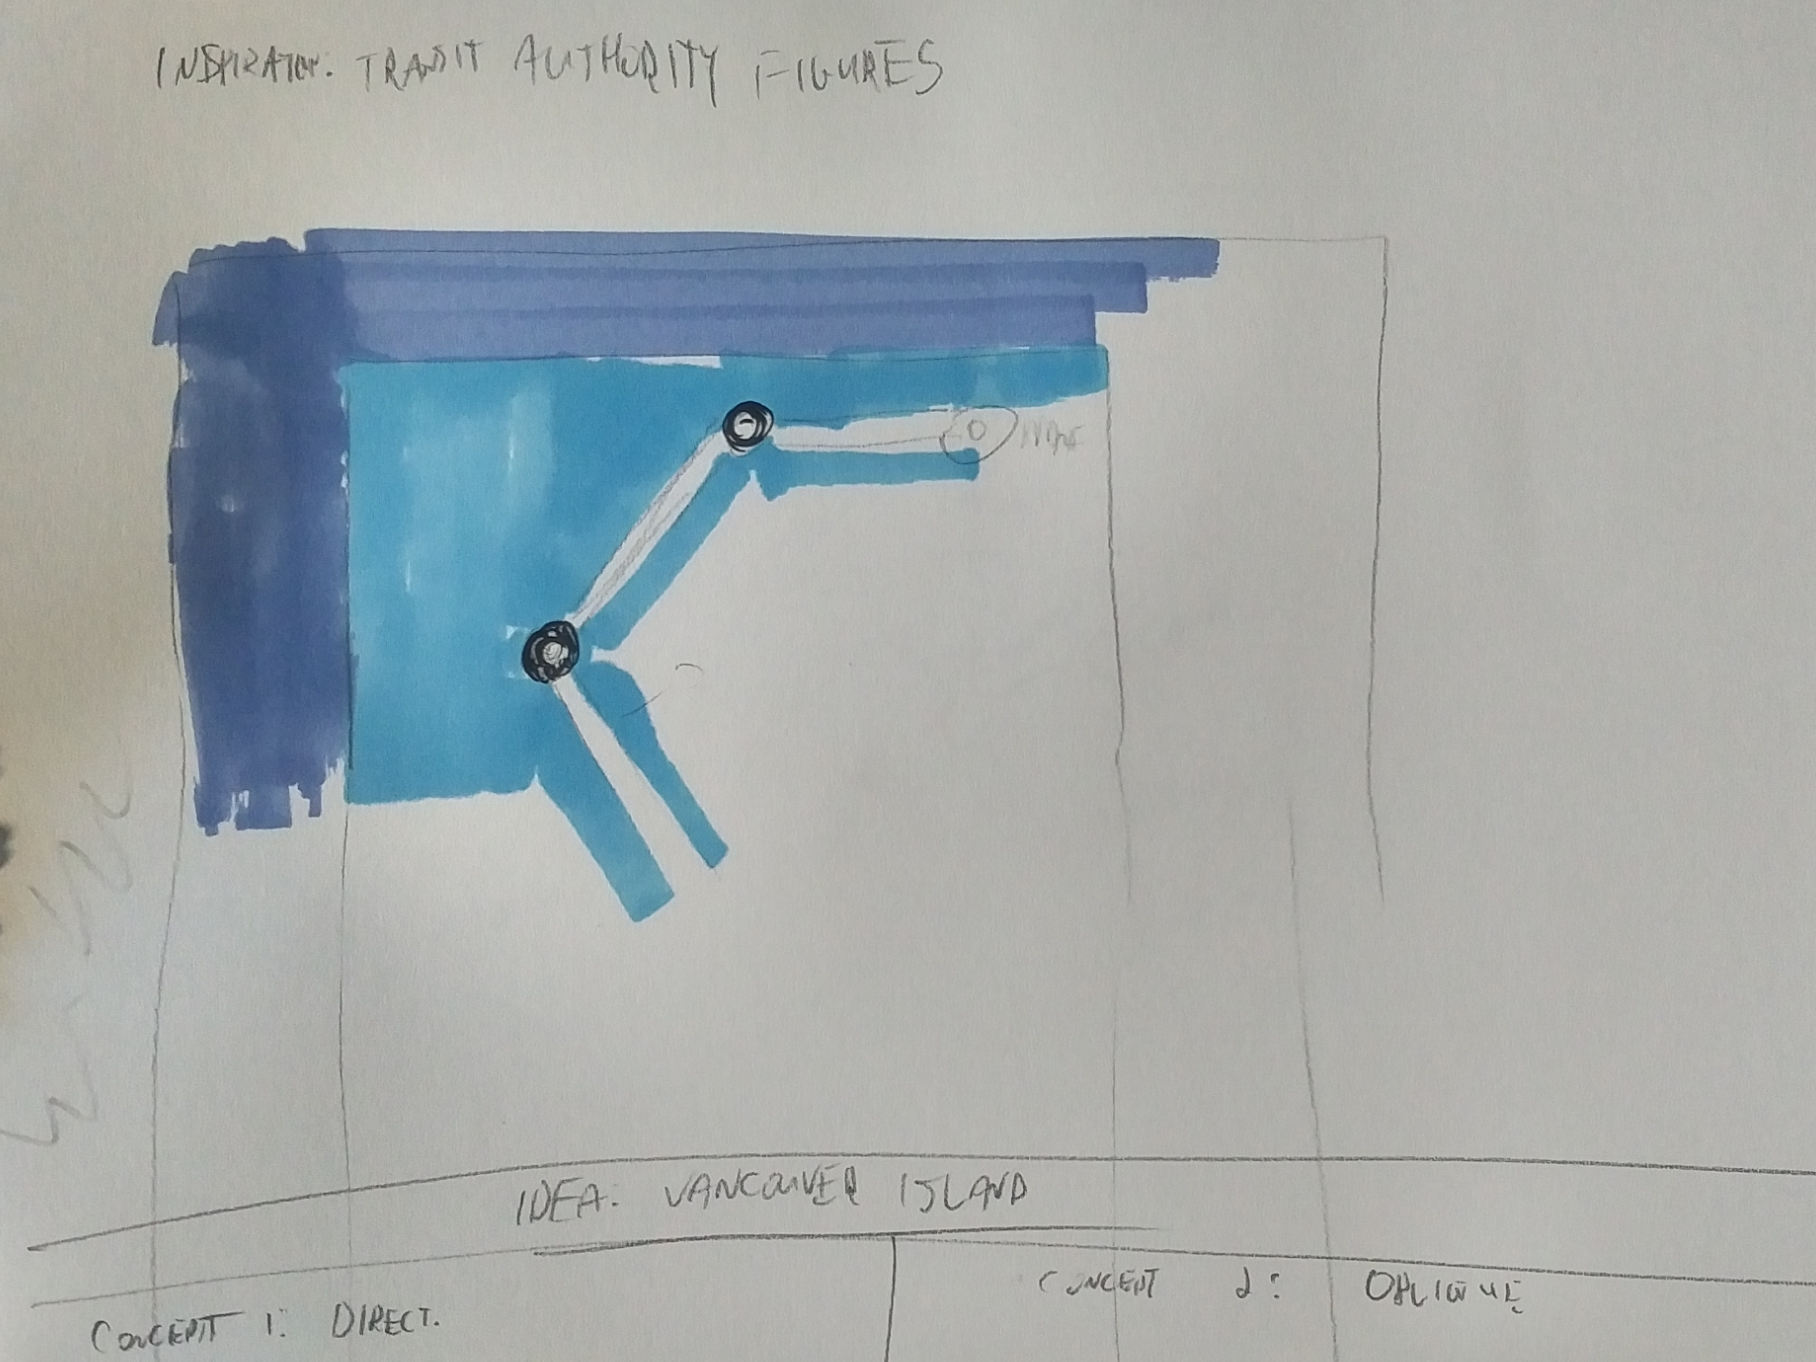 INSPIRATION: TRANSIT AUTHORITY FIGURES
IDEA: VANCOUVER ISLAND
CONCEPT 1: DIRECT.
CONCEPT 2: OBLIQUE